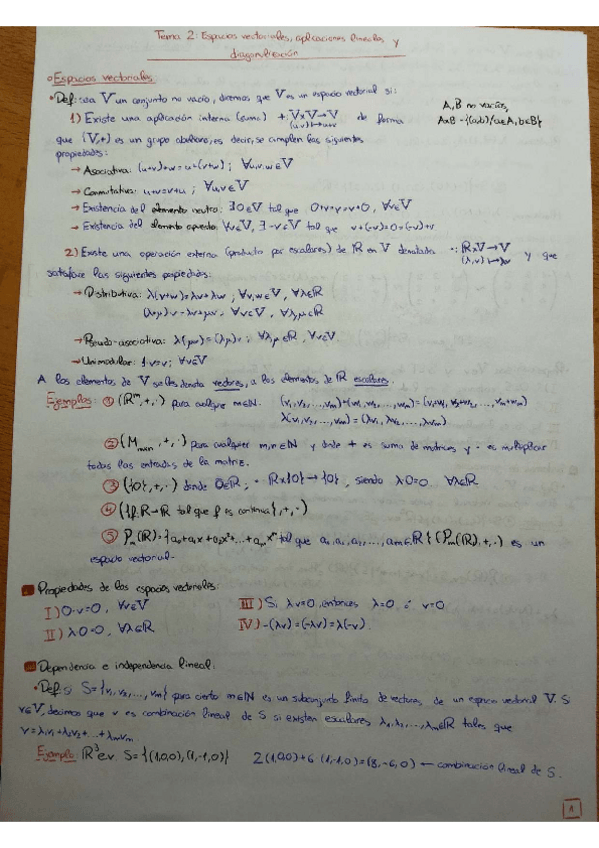 Tema 2: Espacios vectoriales, aplicaciones lineales y
diagonalización
Espacios vectoriales
• Def: sea V un conjunto no vacío, diremos que V es un espacio vectorial si:
1) Existe una aplicación interna (suma) +: V×V→V de forma
(u,v)↦u+v
A,B no vacíos,
A×B={(a,b)/a∈A, b∈B}
que (V,+) es un grupo abeliano, es decir, se cumplen las siguientes
propiedades:
→ Asociativa: (u+v)+w=u+(v+w) ; ∀u,v,w∈V
→ Conmutativa: u+v=v+u ; ∀u,v∈V
→ Existencia del elemento neutro: ∃0∈V tal que 0+v=v+0, ∀v∈V
→ Existencia del elemento opuesto: ∀v∈V, ∃-v∈V tal que v+(-v)=0=(-v)+v
2) Existe una operación externa (producto por escalares) de ℝ en V denotada ·: ℝ×V→V y que
(λ,v)↦λv
satisface las siguientes propiedades:
→ Distributiva: λ(v+w)=λv+λw ; ∀v,w∈V, ∀λ∈ℝ
(λ+μ)v=λv+μv, ∀v∈V, ∀λ,μ∈ℝ
→ Pseudo-asociativa: λ(μv)=(λμ)v ; ∀λ,μ∈ℝ, ∀v∈V
→ Unimodular: 1·v=v; ∀v∈V
A los elementos de V se les denota vectores, a los elementos de ℝ escalares.
Ejemplos: ① (ℝᵐ,+,·) para cualquier m∈ℕ. (v₁,v₂,...,vₘ)+(w₁,w₂,...,wₘ)=(v₁+w₁,v₂+w₂,...,vₘ+wₘ)
λ(v₁,v₂,...,vₘ)=(λv₁,λv₂,...,λvₘ)
② (Mₘₓₙ,+,·) para cualquier m,n∈ℕ y donde + es suma de matrices y · es multiplicar
todas las entradas de la matriz.
③ ({0},+,·) donde 0∈ℝ; · ℝ×{0}→{0}, siendo λ0=0 ∀λ∈ℝ
④ ({f:ℝ→ℝ tal que f es continua},+,·)
⑤ Pₘ(ℝ)={a₀+a₁x+a₂x²+...+aₘxᵐ tal que a₀,a₁,a₂,...,aₘ∈ℝ} (Pₘ(ℝ),+,·) es un
espacio vectorial.
Propiedades de los espacios vectoriales:
I) 0·v=0, ∀v∈V
III) Si λv=0, entonces λ=0 ó v=0
II) λ0=0, ∀λ∈ℝ
IV) -(λv)=(-λ)v=λ(-v).
Dependencia e independencia lineal:
• Def: si S={v₁,v₂,...,vₘ} para cierto m∈ℕ es un subconjunto finito de vectores de un espacio vectorial V. Si
v∈V, decimos que v es combinación lineal de S si existen escalares λ₁,λ₂,...,λₘ∈ℝ tales que
v=λ₁v₁+λ₂v₂+...+λₘvₘ
Ejemplo: ℝ³ e.v. S={(1,0,0),(1,-1,0)} 2(1,0,0)+6(1,-1,0)=(8,-6,0) — combinación lineal de S.
1